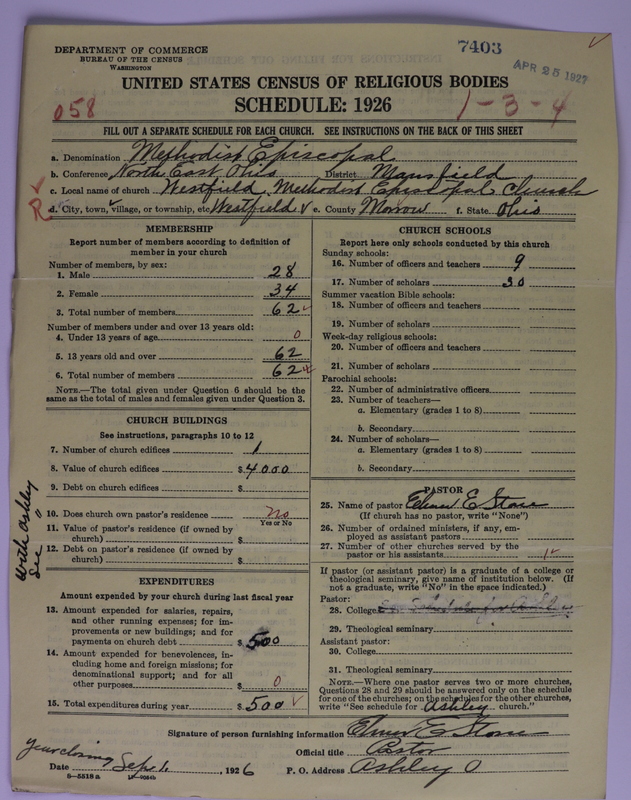 7403
APR 25 1927
DEPARTMENT OF COMMERCE
BUREAU OF THE CENSUS
WASHINGTON
UNITED STATES CENSUS OF RELIGIOUS BODIES
SCHEDULE: 1926
058
1-3-4
FILL OUT A SEPARATE SCHEDULE FOR EACH CHURCH. SEE INSTRUCTIONS ON THE BACK OF THIS SHEET
a. Denomination Methodist Episcopal
b. Conference North East Ohio District Mansfield
c. Local name of church Westfield Methodist Episcopal Church
R
d. City, town, village, or township, etc. Westfield e. County Morrow f. State Ohio
MEMBERSHIP
Report number of members according to definition of
member in your church
Number of members by sex:
1. Male 28
2. Female 34
3. Total number of members 62
Number of members under and over 13 years old:
4. Under 13 years of age 0
5. 13 years old and over 62
6. Total number of members 62
NOTE.—The total given under Question 6 should be the
same as the total of males and females given under Question 3.
CHURCH BUILDINGS
See instructions, paragraphs 10 to 12
7. Number of church edifices 1
8. Value of church edifices $ 4000
9. Debt on church edifices $
10. Does church own pastor's residence No
Yes or No
11. Value of pastor's residence (if owned by
church) $
12. Debt on pastor's residence (if owned by
church) $
With Ashley
See
EXPENDITURES
Amount expended by your church during last fiscal year
13. Amount expended for salaries, repairs,
and other running expenses; for im-
provements or new buildings; and for
payments on church debt $ 500
14. Amount expended for benevolences, in-
cluding home and foreign missions; for
denominational support; and for all
other purposes $ 0
15. Total expenditures during year $ 500
CHURCH SCHOOLS
Report here only schools conducted by this church
Sunday schools:
16. Number of officers and teachers 9
17. Number of scholars 30
Summer vacation Bible schools:
18. Number of officers and teachers
19. Number of scholars
Week-day religious schools:
20. Number of officers and teachers
21. Number of scholars
Parochial schools:
22. Number of administrative officers
23. Number of teachers—
a. Elementary (grades 1 to 8)
b. Secondary
24. Number of scholars—
a. Elementary (grades 1 to 8)
b. Secondary
PASTOR
25. Name of pastor Elmer E Stone
(If church has no pastor, write "None")
26. Number of ordained ministers, if any, em-
ployed as assistant pastors
27. Number of other churches served by the
pastor or his assistants 1
If pastor (or assistant pastor) is a graduate of a college or
theological seminary, give name of institution below. (If
not a graduate, write "No" in the space indicated.)
Pastor:
28. College See Schedule for Ashley
29. Theological seminary
Assistant pastor:
30. College
31. Theological seminary
NOTE.—Where one pastor serves two or more churches,
Questions 28 and 29 should be answered only on the schedule
for one of the churches; on the schedules for the other churches,
write "See schedule for Ashley church."
Signature of person furnishing information Elmer E Stone
Official title Pastor
year closing
Date Sept 1, 1926 P. O. Address Ashley O
8—5518a